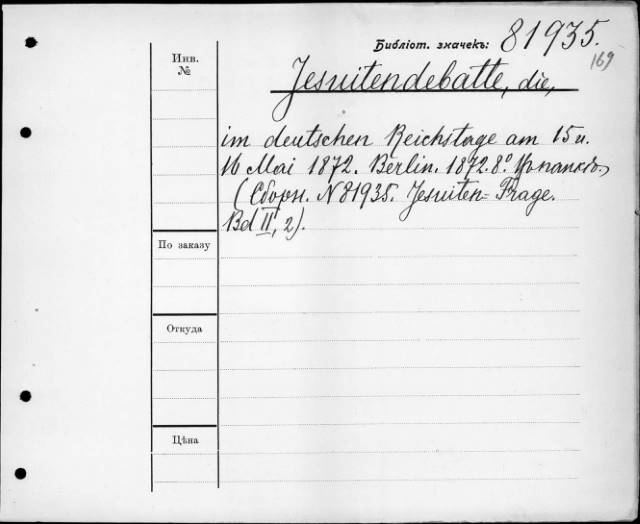 Библіот. значекъ: 81935.
169
Инв.
№
Jesuitendebatte, die,
im deutschen Reichstage am 15 u.
16 Mai 1872. Berlin. 1872. 8°
(Сборн. N 81935. Jesuiten=Frage.
Bd II, 2).
По заказу
Откуда
Цѣна